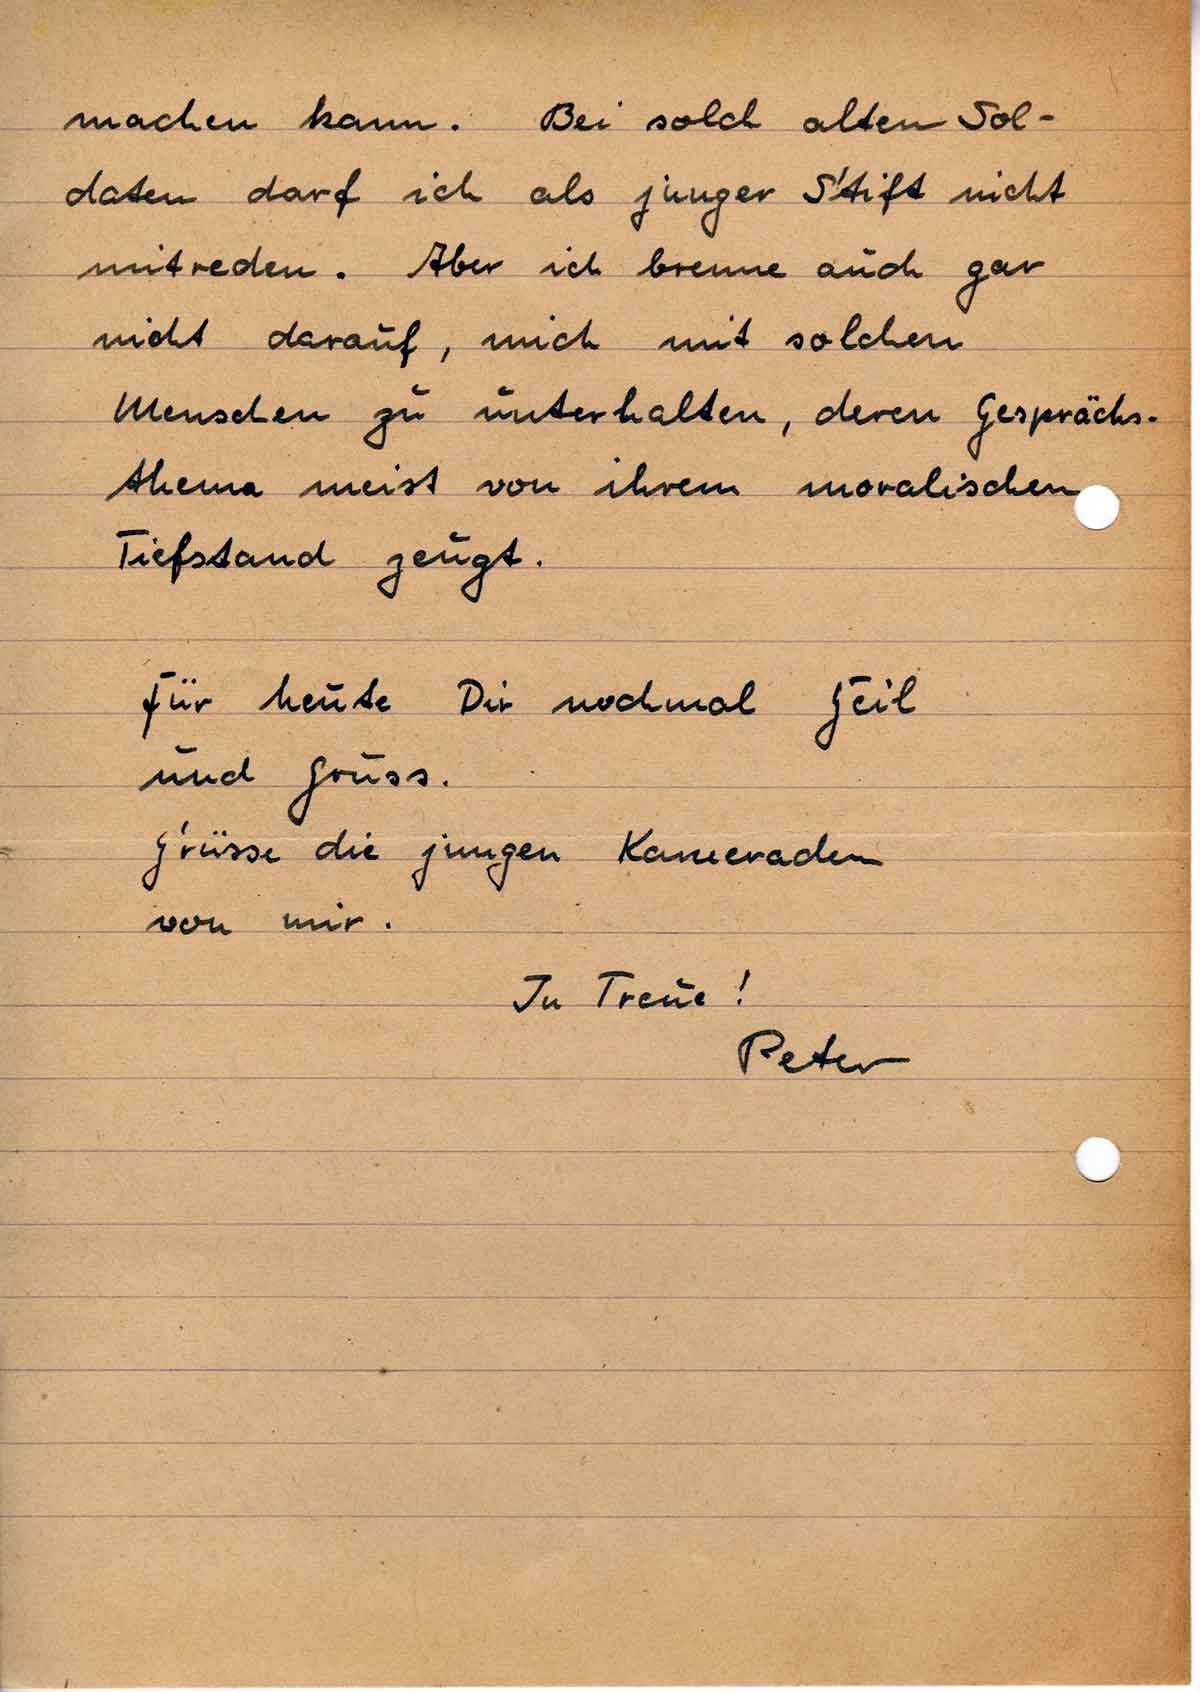 machen kann. Bei solch alten Sol-
daten darf ich als junger Stift nicht
mitreden. Aber ich brenne auch gar
nicht darauf, mich mit solchen
Menschen zu unterhalten, deren Gesprächs-
thema meist von ihrem moralischen
Tiefstand zeugt.
Für heute Dir nochmal Heil
und Gruss.
Grüsse die jungen Kameraden
von mir.
In Treue!
Peter